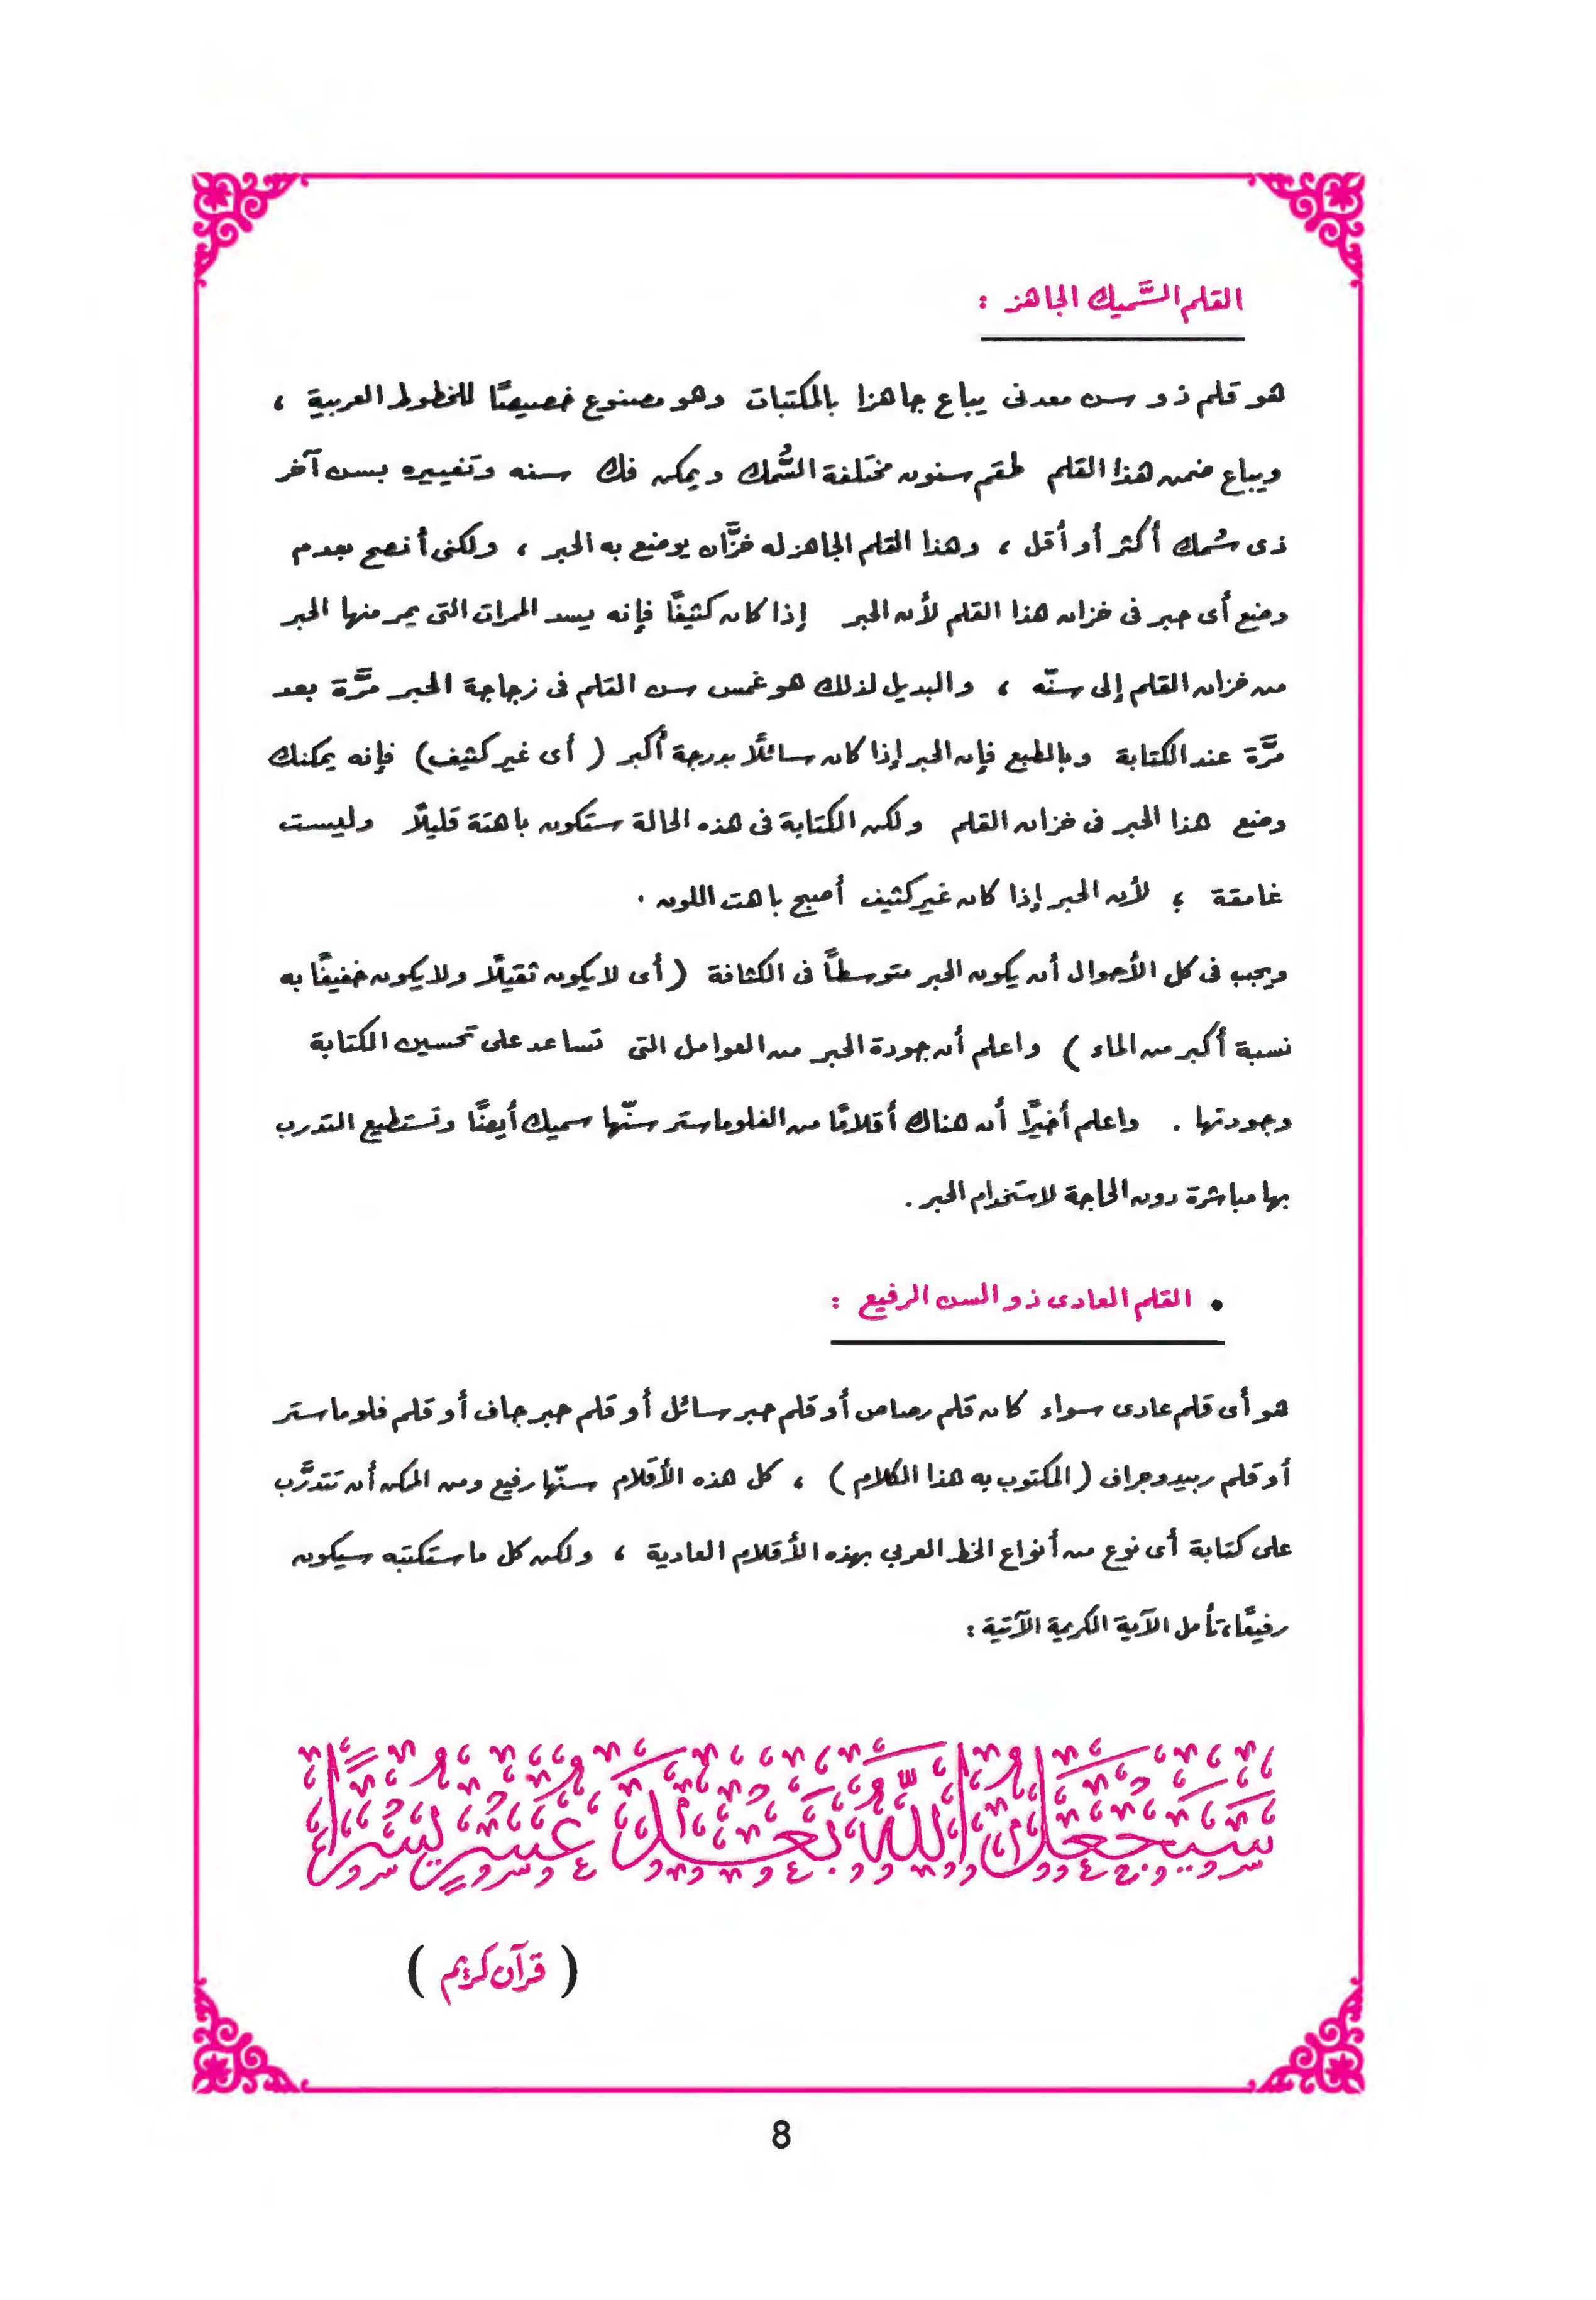 القلم السَّميك الجاهز :
هو قلم ذو سن معدنى يباع جاهزا بالمكتبات وهو مصنوع خصيصًا للخطوط العربية ،
ويباع ضمن هذا القلم طقم سنون مختلفة السُّمك ويمكن فك سنه وتغييره بسن آخر
ذى سُمك أكثر أو أقل ، وهذا القلم الجاهز له خزَّان يوضع به الحبر ، ولكنى أنصح بعدم
وضع أى حبر فى خزان هذا القلم لأن الحبر إذا كان كثيفًا فإنه يسد الممرات التى يمر منها الحبر
من خزان القلم إلى سنّه ، والبديل لذلك هو غمس سن القلم فى زجاجة الحبر مرَّة بعد
مرَّة عند الكتابة وبالطبع فإن الحبر إذا كان سائلًا بدرجة أكبر ( أى غير كثيف) فإنه يمكنك
وضع هذا الحبر فى خزان القلم ولكن الكتابة فى هذه الحالة ستكون باهتة قليلًا وليست
غامقة ؛ لأن الحبر إذا كان غير كثيف أصبح باهت اللون .
ويجب فى كل الأحوال أن يكون الحبر متوسطًا فى الكثافة ( أى لا يكون ثقيلًا ولا يكون خفيفًا به
نسبة أكبر من الماء ) واعلم أن جودة الحبر من العوامل التى تساعد على تحسين الكتابة
وجودتها . واعلم أخيرًا أن هناك أقلامًا من الفلوماستر سنّها سميك أيضًا وتستطيع التدرب
بها مباشرة دون الحاجة لاستخدام الحبر .
• القلم العادى ذو السن الرفيع :
هو أى قلم عادى سواء كان قلم رصاص أو قلم حبر سائل أو قلم حبر جاف أو قلم فلوماستر
أو قلم ربيدوجراف ( المكتوب به هذا الكلام ) ، كل هذه الأقلام سنّها رفيع ومن الممكن أن تتدرَّب
على كتابة أى نوع من أنواع الخط العربي بهذه الأقلام العادية ، ولكن كل ما ستكتبه سيكون
رفيعًا، تأمل الآية الكريمة الآتية :
سَيَجْعَلُ اللَّهُ بَعْدَ عُسْرٍ يُسْرًا
( قرآن كريم )
8